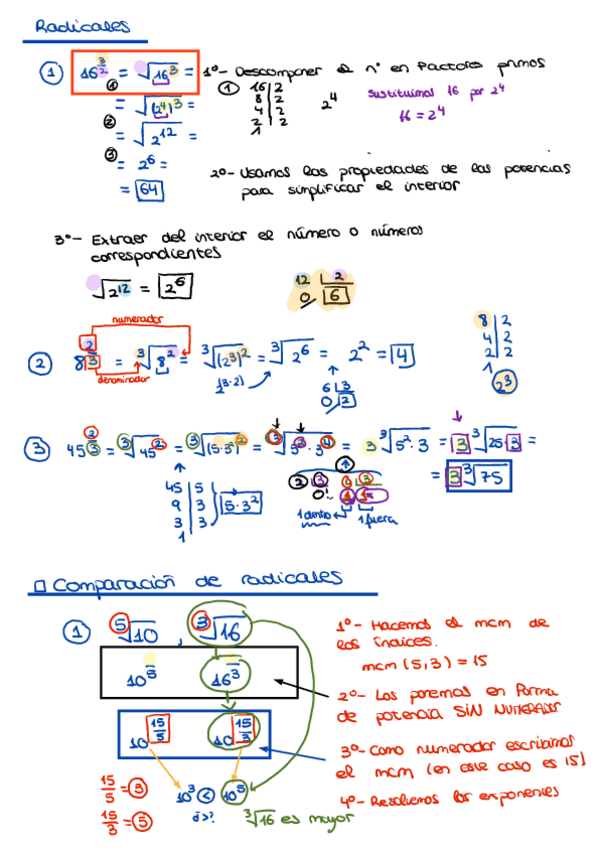 Radicales
① 16^(3/2) = √16³ = 1º- Descomponer el nº en factores primos
① 16 | 2
8 | 2
4 | 2
2 | 2
1
2⁴
Sustituimos 16 por 2⁴
16 = 2⁴
① = √(2⁴)³ =
② = √2¹² =
③ = 2⁶ =
= 64
2º- Usamos las propiedades de las potencias
para simplificar el interior
3º- Extraer del interior el número o números
correspondientes
√2¹² = 2⁶
12 | 2
0 6
numerador
② 8^(2/3) = ³√8² = ³√(2³)² = ³√2⁶ = 2² = 4
denominador
(3·2)
6 | 3
0 2
8 | 2
4 | 2
2 | 2
1
2³
③ 45^(2/3) = ³√45² = ³√(5·3²)² = ³√5²·3⁴ = 3 ³√5²·3 = 3 ³√25·3 =
= 3 ³√75
45 | 5
9 | 3
3 | 3
1
5·3²
2 3 4 3
0 1 1
1 dentro 1 fuera
Comparación de radicales
① ⁵√10 , ³√16
10^(/5) 16^(/3)
10^(15/5) 10^(15/3)
15/5 = 3
15/3 = 5
10³ < 10⁵
¿>?
³√16 es mayor
1º- Hacemos el mcm de
los índices.
mcm (5,3) = 15
2º- Los ponemos en forma
de potencia SIN NUMERADOR
3º- Como numerador escribimos
el mcm (en este caso es 15)
4º- Resolvemos los exponentes